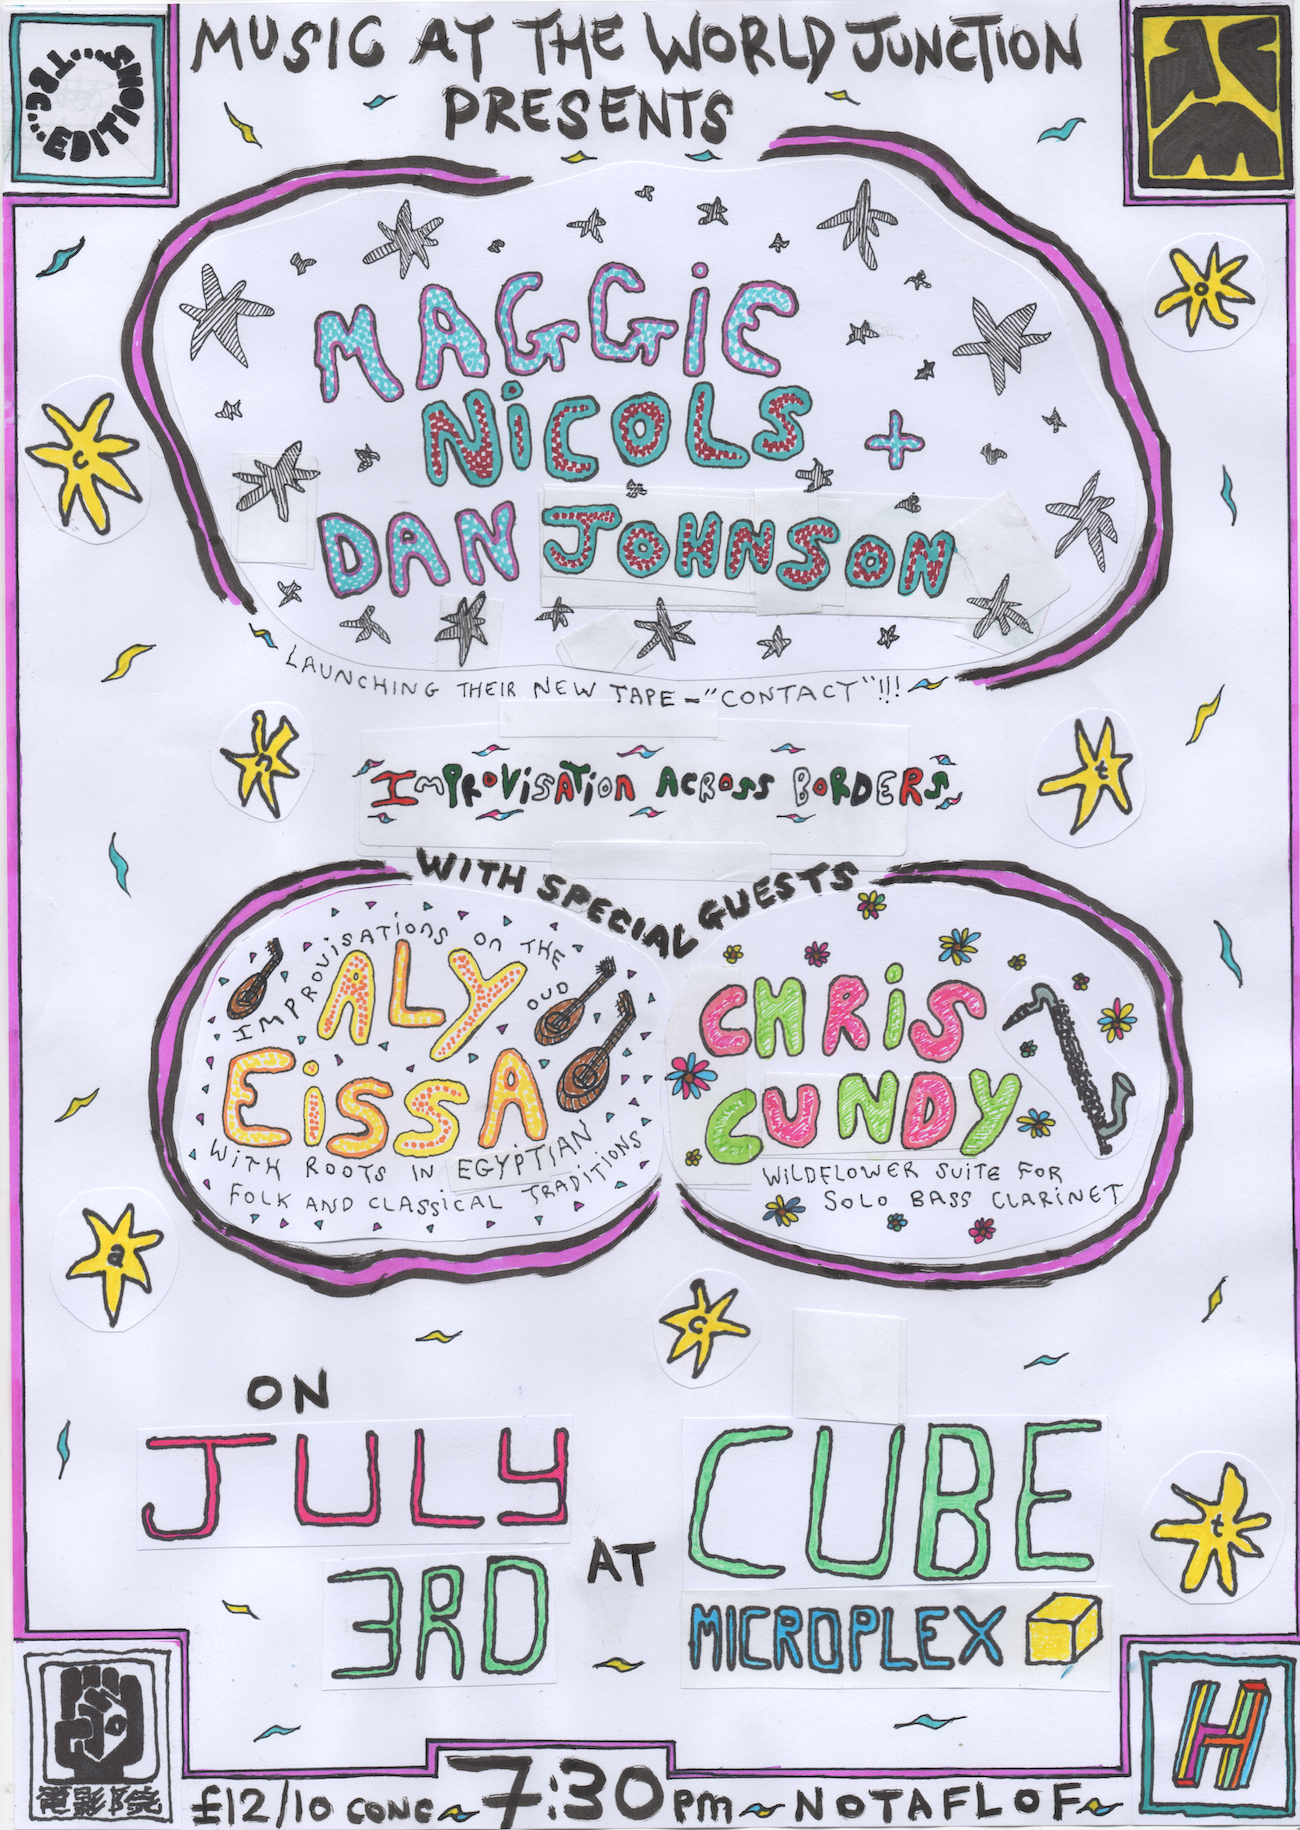 MUSIC AT THE WORLD JUNCTION
PRESENTS
....TBC....EDITIONS
MAGGiE
NiCOLS +
DAN JOHNSON
LAUNCHING THEIR NEW TAPE - "CONTACT"!!!
IMPROVISATiON ACROSS BORDERS
WITH SPECIAL GUESTS
IMPROVISATIONS ON THE OUD
ALY
EiSSA
WITH ROOTS IN EGYPTIAN
FOLK AND CLASSICAL TRADITIONS
CHRiS
CUNDY
WILDFLOWER SUITE FOR
SOLO BASS CLARINET
c
o
n
t
a
c
t
ON
JULY
3RD
AT
CUBE
MICROPLEX
電影院
£12/10 CONC ~ 7:30 PM ~ NOTAFLOF ~
H